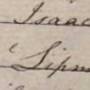 Isaac
Lipm